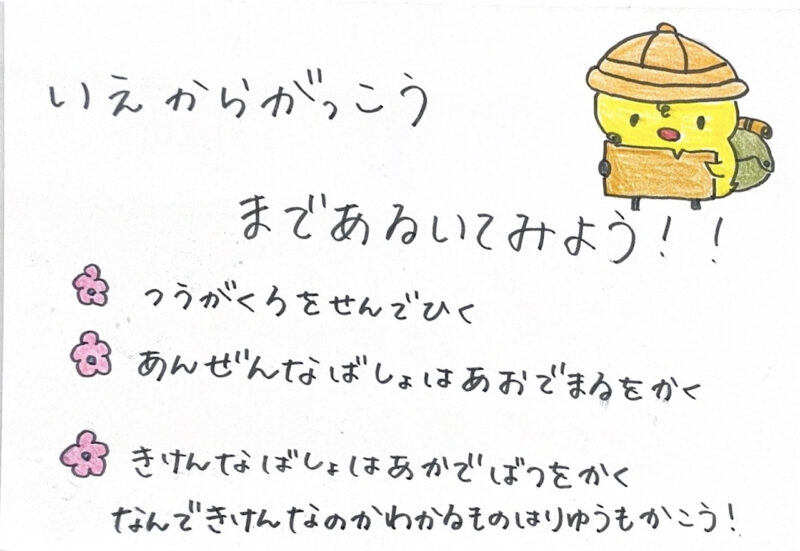 いえからがっこう
まであるいてみよう！！
つうがくろをせんでひく
あんぜんなばしょはあおでまるをかく
きけんなばしょはあかでばつをかく
なんできけんなのかわかるものはりゆうもかこう！